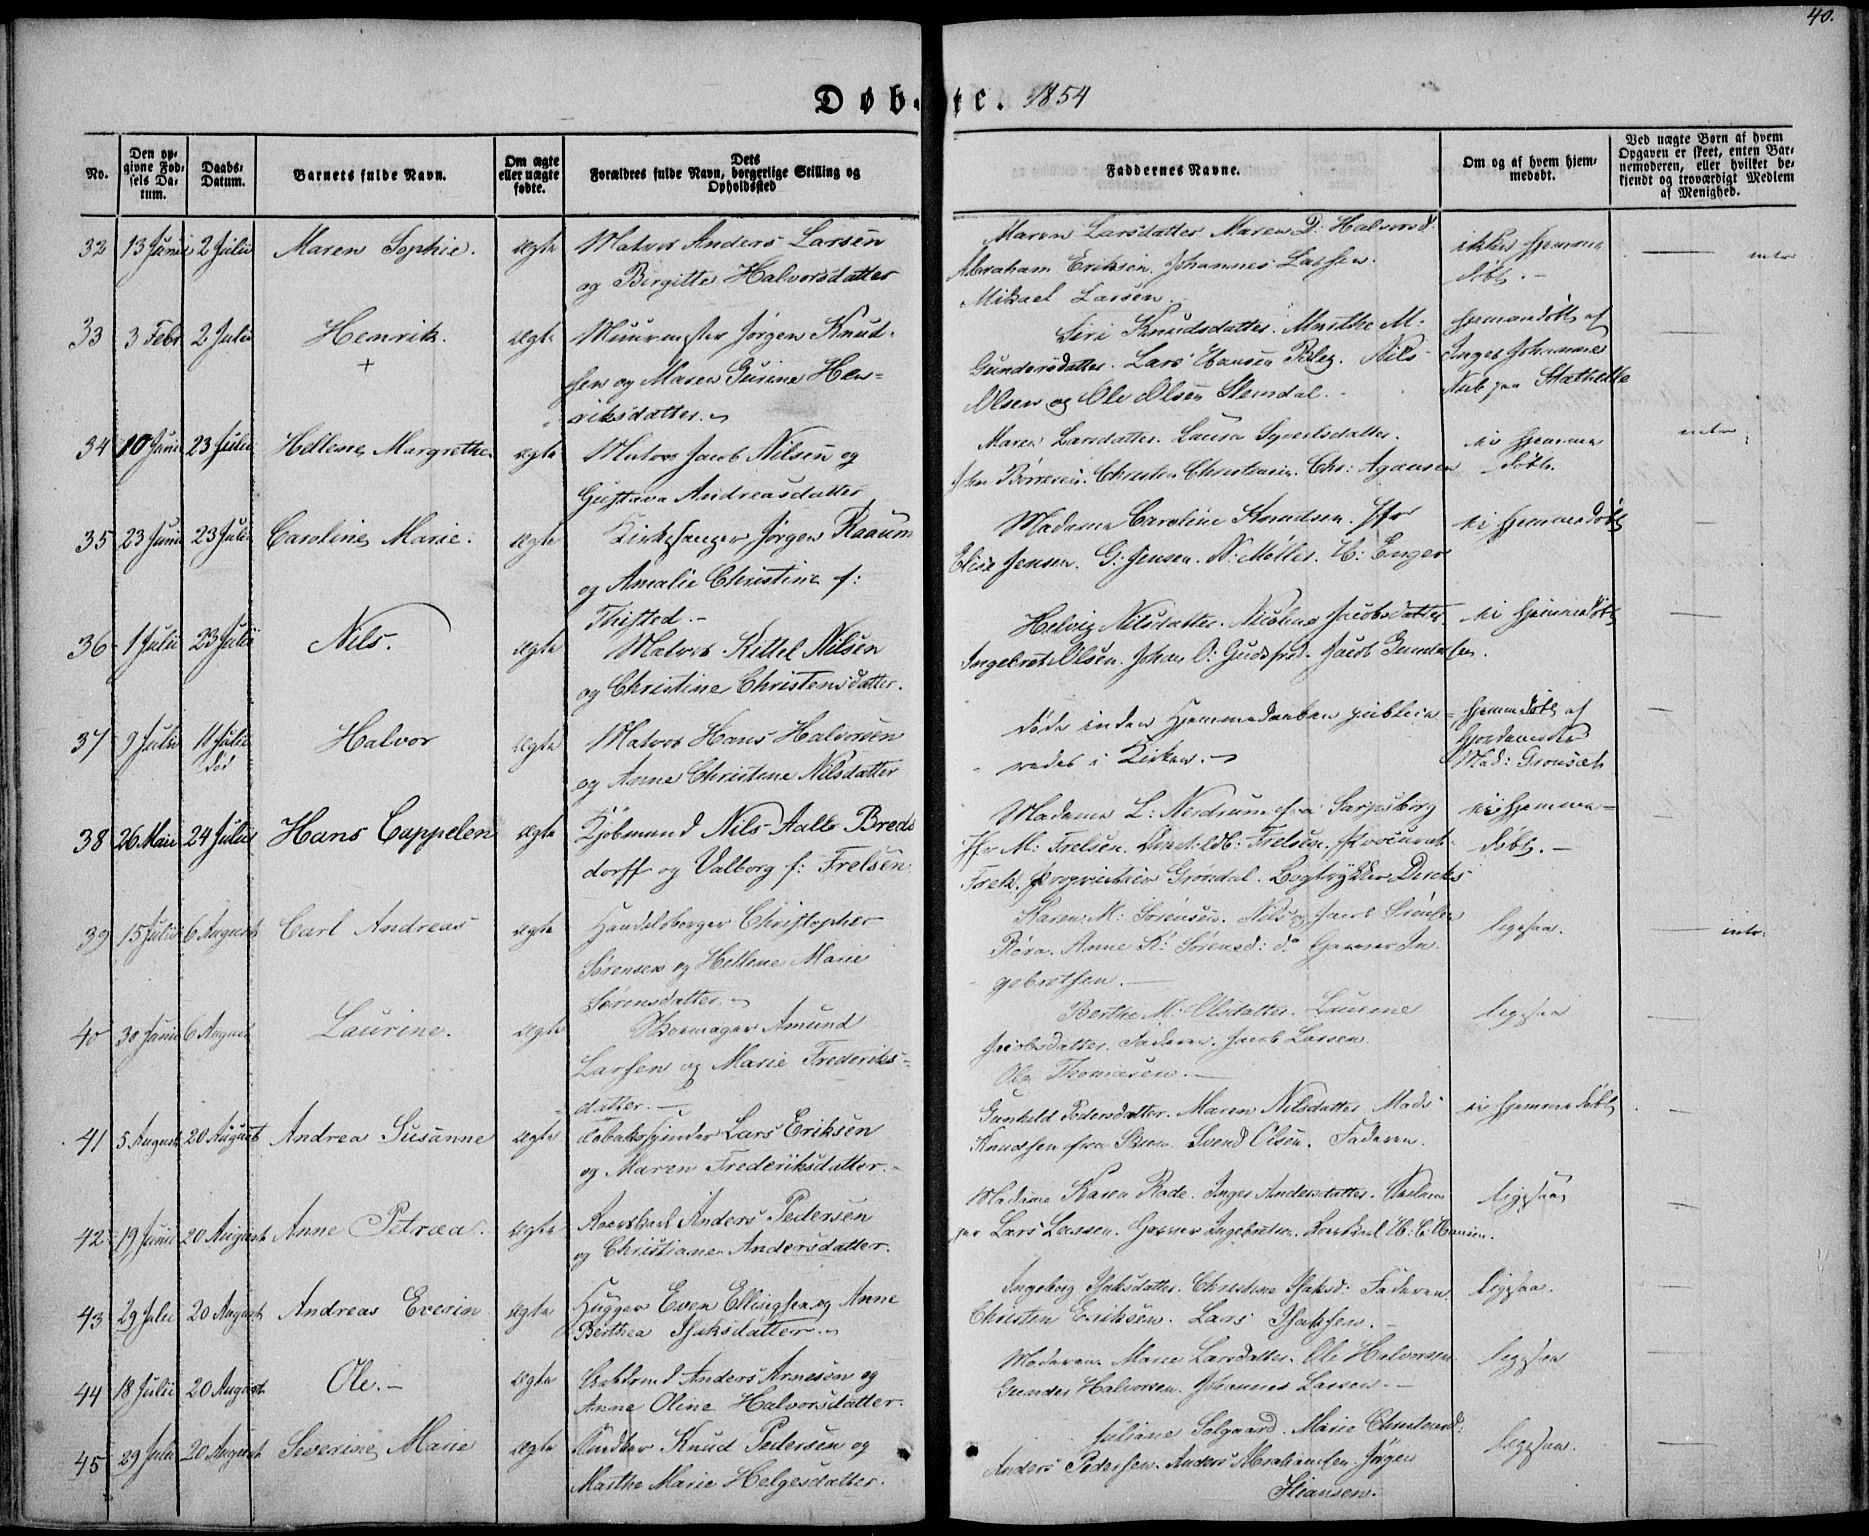 40.
Døbte. 1854
No.
Den opgivne Fødsels Datum.
Daabs-Datum.
Barnets fulde Navn.
Om ægte eller uægte fødte.
Dets Forældres fulde Navn, borgerlige Stilling og Opholdssted
Faddernes Navne.
Om og af hvem hjemmedøbt.
Ved uægte Børn af hvem Opgaven er skeet, enten Barnemoderen, eller hvilket bekjendt og troværdigt Medlem af Menighed.
32 13 Juni 2 Julii Maren Sophie. ægte Matros Anders Larsen
og Birgitte Halvorsdatter
Maren Larsdatter Maren D. Halvorsd.
Abraham Eriksen. Johannes Larsen.
Mikael Larsen.
ikke hjemme
døbt.-
33 3 Febr 2 Julii Henrik. + ægte Muurmester Jørgen Knud-
sen og Maren Gurine Hen=
riksdatter.
Siri Knudsdatter. Marthe M.
Gundersdatter. Lars Hansen. Nils
Olsen og Ole Olsen Stendal.
hjemmedøbt af
Inger Johanne
paa Stathelle
34 10 Juni 23 Julii Hellene Margrethe ægte Matros Jacob Nilsen og
Gustava Andreasdatter
Maren Larsdatter. Laura Syvertsdatter.
Børresen. Christen Christensen. Chr: Agansen
ei hjemme
døbt.
35 23 Juni 23 Julii Caroline Marie. ægte Kirkesanger Jørgen Raaum
og Amalie Christine f:
Thisted.-
Madame Caroline Knudsen. Jfr
Elise Jensen. G. Jensen. N. Møller. H: Enger
ei hjemmedøbt
36 1 Julii 23 Julii Nils. ægte Matros Kittel Nilsen
og Christine Christensdatter.
Helvig Nilsdatter. Nicoline Jacobsdatter
Ingebret Olsen. Johan O: Gudsfred. Jacob Gundersen.
ei hjemmedøbt
37 9 Julii 11 Julii død Halvor ægte Matros Hans Halvorsen
og Anne Christine Nilsdatter
døde inden Hjemmedaaben publice=
redes i Kirken.
hjemmedøbt af
Jordemoder
Mad: Gronsæt
38 26 Maii 24 Julii Hans Cappelen ægte Kjøbmand Nils Aall Breds
dorff og Valborg f: Frelsen.
Madame L: Nerdrum fra Sarpsborg
Jfr M: Frelsen. Frelsen. Procurat:
Proprietair Grøndal. Bogtrykker Dircks
ei hjemme=
døbt.-
39 15 Julii 6 August Carl Andreas ægte Handelsborger Christopher
Sørensen og Hellene Marie
Sørensdatter.
Karen M: Sørensen. Nils og Jacob Sørensen
Røra. Anne K: Sørensd: do Gunner In
gebretsen.
ligesaa.
40 30 Juni 6 August Laurine. ægte Skomager Amund
Larsen og Marie Frederiks=
datter.-
Berthe M: Olsdatter. Laurine
Jacobsdatter. Faderen. Jacob Larsen
Ole Thomasen.
ligesaa
41 5 August 20 August Andrea Susanne ægte Tobaksspinder Lars Eriksen
og Maren Frederiksdatter.
Gunhild Pedersdatter. Maren Nilsdatter. Mads
Knudsen fra Skien. Svend Olsen. Faderen.
ei hjemmedøbt
42 19 Juni 20 August Anne Petræa. ægte Anders Pedersen
og Christiane Andersdatter.
Madame Karen Rode. Inger Andersdatter.
Lars Larsen. Gunner Ingebretsen. H: C. Hansen.
ligesaa
43 29 Julii 20 August Andreas Everin ægte Hugger Even Ellingsen og Anne
Berthea Isaksdatter.
Ingeborg Isaksdatter. Christine Isaksd: Faderen
Christen Eriksen. Lars Isaksen.-
ligesaa.
44 18 Julii 20 August Ole.- ægte Anders Arnesen og
Anne Oline Halvorsdatter.
Moderen. Marie Larsdatter. Ole Halvorsen
Gunder Halvorsen. Johannes Larsen.-
ligesaa
45 29 Julii 20 August Severine Marie ægte Knud Pedersen og
Marthe Marie Helgesdatter.
Juliane Solgaard. Marie
Anders Pedersen. Anders Abrahamsen. Jørgen
Hansen.
ligesaa.